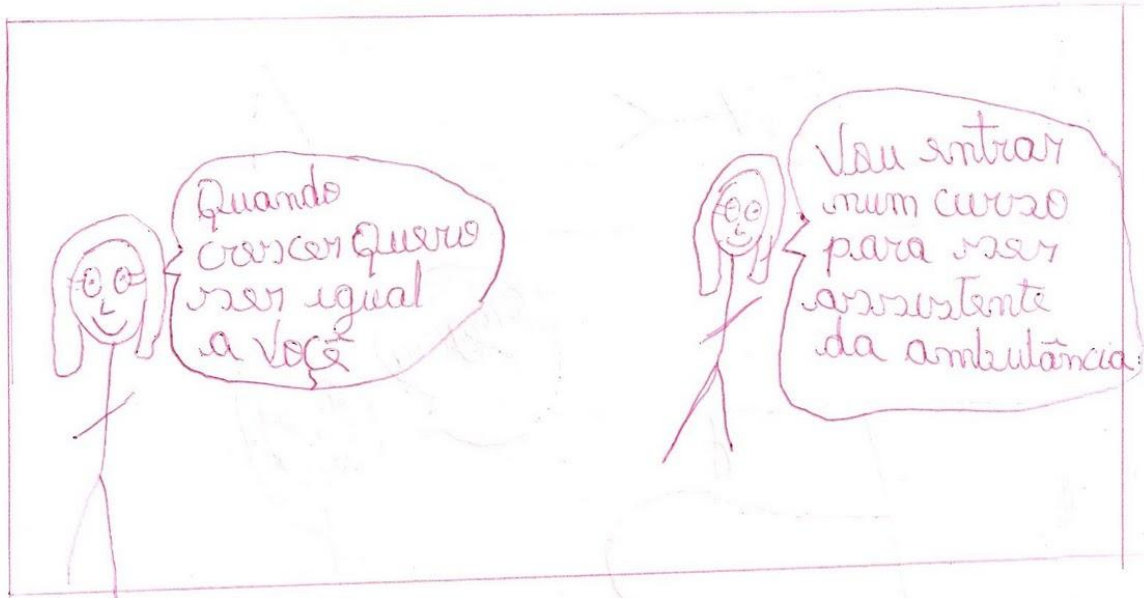 Quando
crescer Quero
ser igual
a Voçê
Vou entrar
num curso
para ser
assistente
da ambulância.